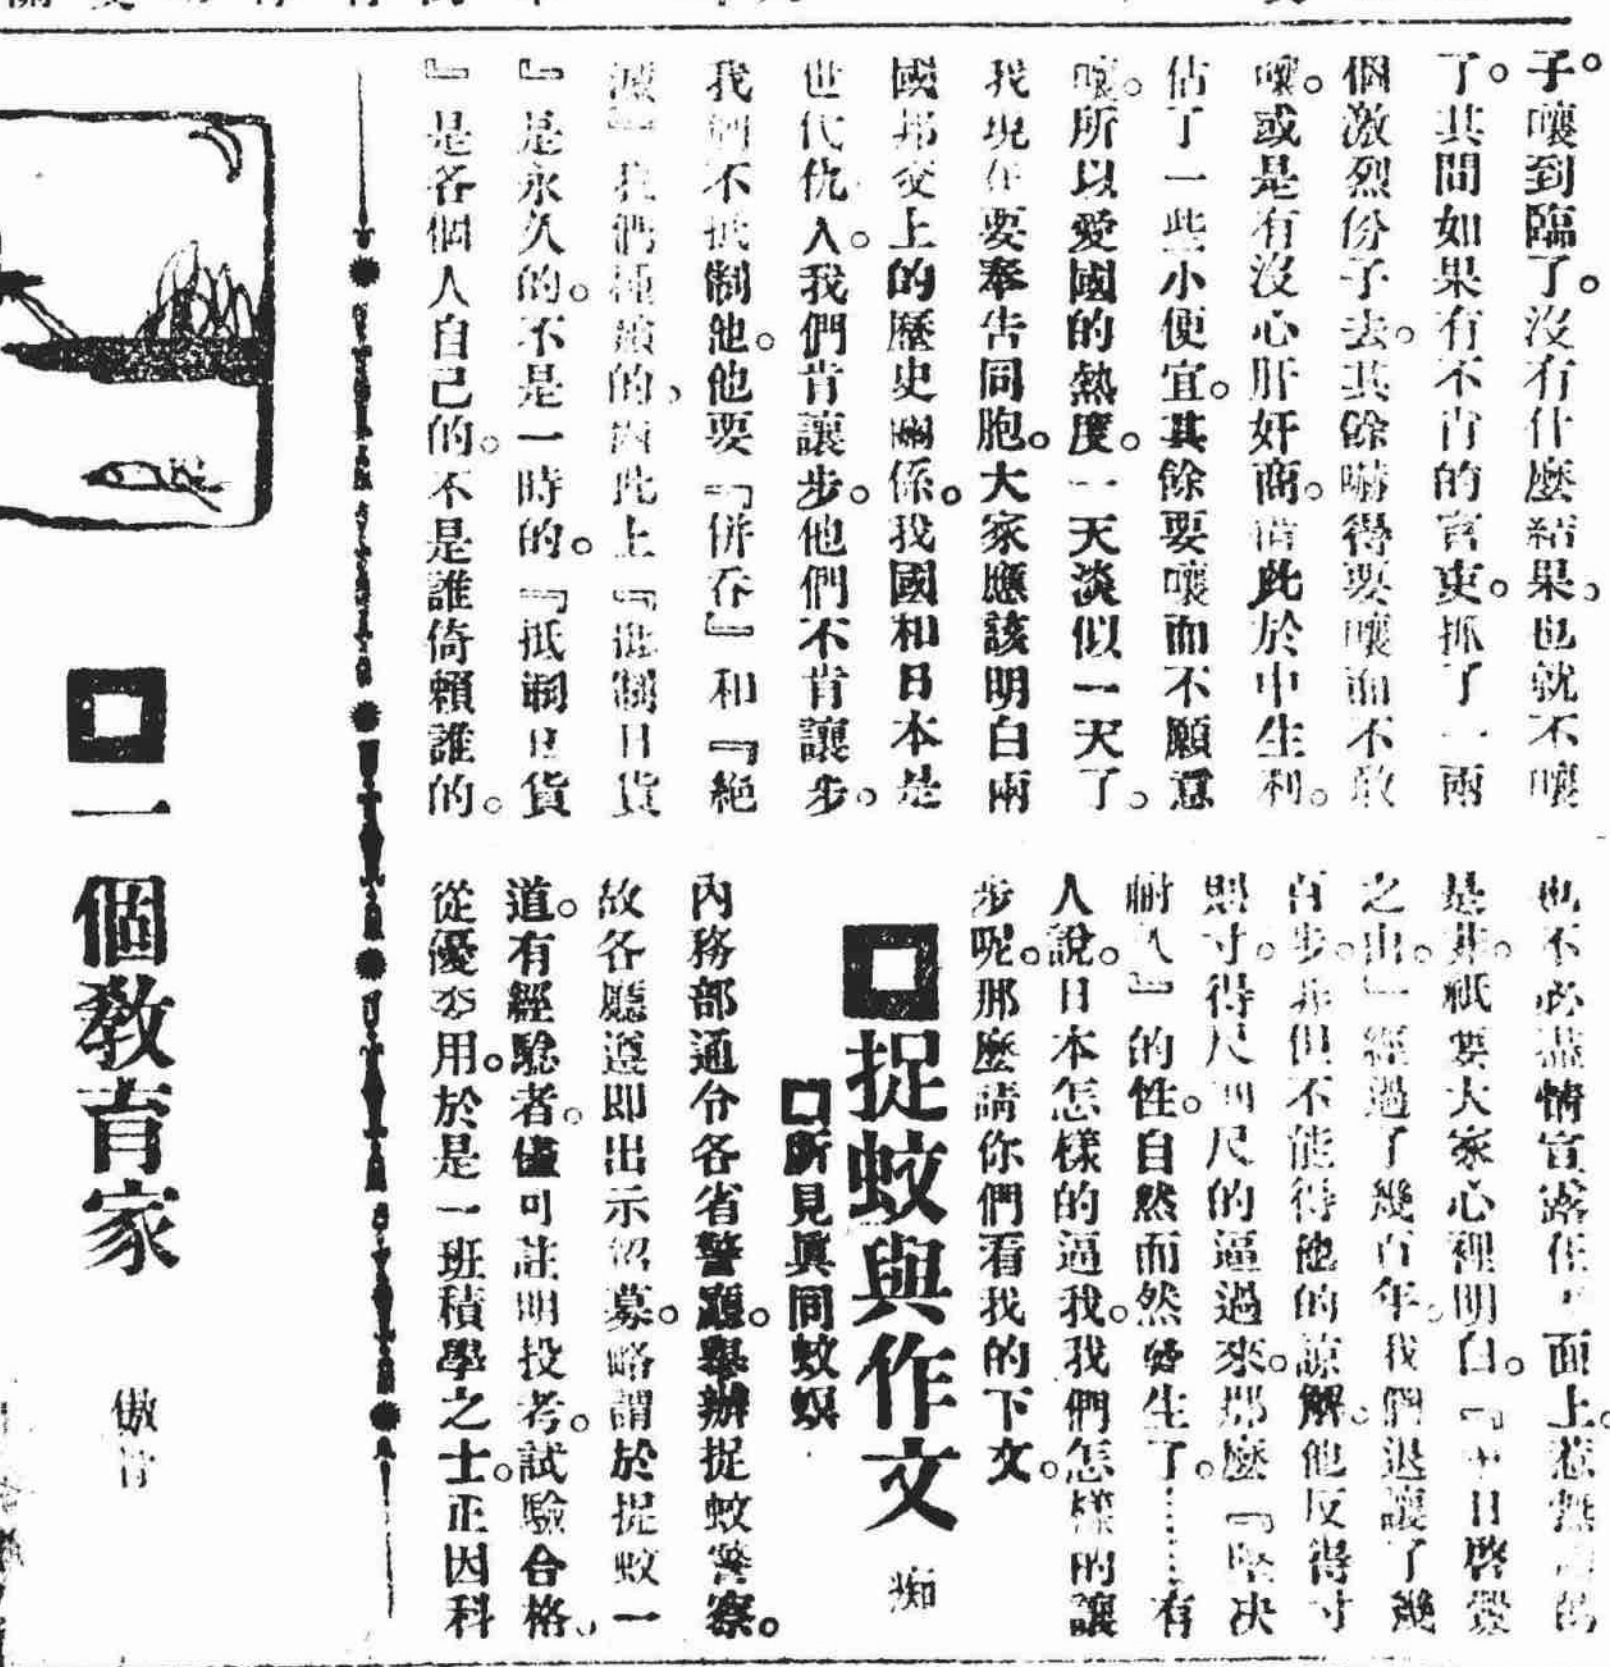 子。嚷到臨了。沒有什麼結果。也就不嚷
了。其間如果有不肯的官吏。抓了一兩
個激烈份子去。其餘嚇得要嚷而不敢
嚷。或是有沒心肝奸商。借此於中生利。
佔了一些小便宜。其餘要嚷而不願意
嚷。所以愛國的熱度。一天淡似一天了。
我現在要奉告同胞。大家應該明白兩
國邦交上的歷史關係。我國和日本是
世代仇人。我們肯讓步。他們不肯讓步。
我們不抵制他。他要『併吞』和『絕
滅』我們種族的、因此上『抵制日貨
』是永久的。不是一時的。『抵制日貨
』是各個人自己的。不是誰倚賴誰的。
也不必盡情宣露在 面上。惹無 的
是非。祇要大家心裡明白。『中日啓釁
之由』經過了幾百年。我們退讓了幾
百步。非但不能得他的諒解。他反得寸
則寸。得尺則尺的逼過來。那麼『堅决
耐久』的性。自然而然發生了。……有
人說。日本怎樣的逼我。我們怎樣的讓
步呢。那麼請你們看我的下文。
捉蚊與作文 痴
所見眞同蚊蜹
內務部通令各省警廳。舉辦捉蚊警察。
故各廳遵即出示招募。略謂於捉蚊一
道。有經驗者。儘可註明投考。試驗合格。
從優委用。於是一班積學之士。正因科
一個教育家 傲